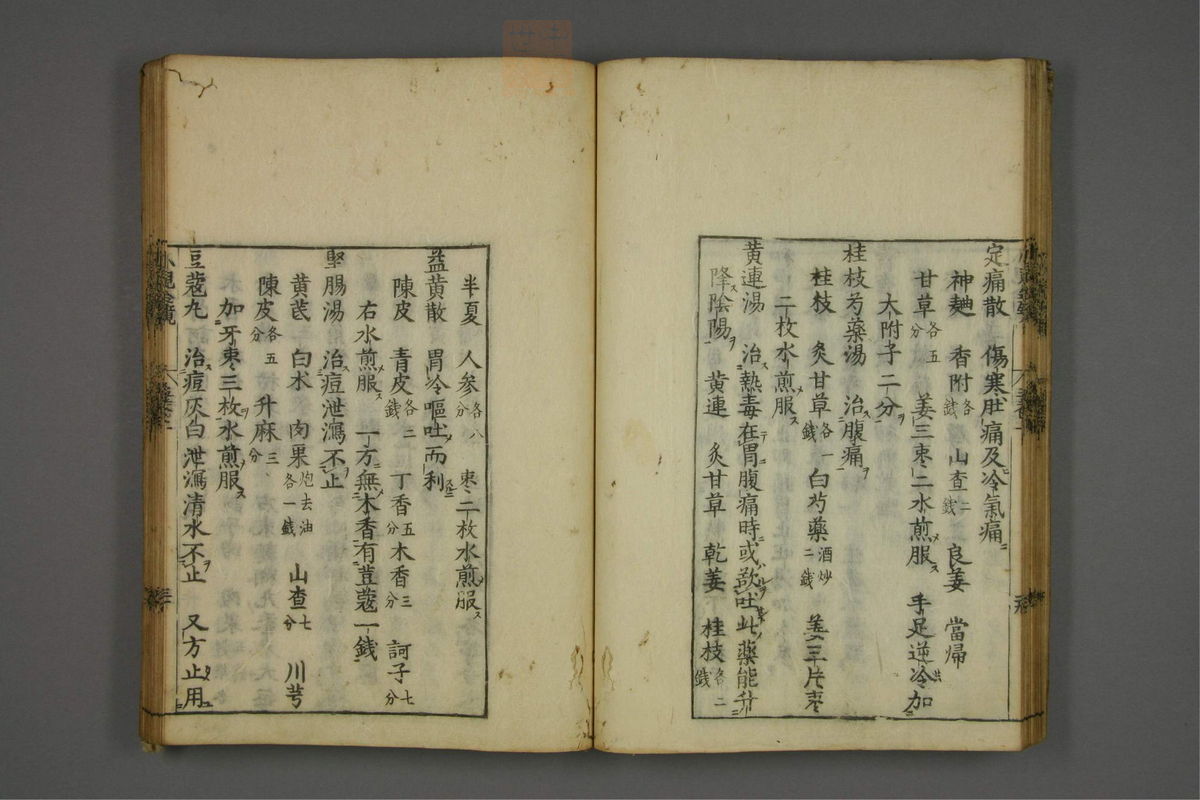 定痛散　傷寒肚痛及冷氣痛
神麯　香附各錢　山查二錢　良姜　當帰
甘草各五分　姜三枣二水煎服　手足逆冷加
大附子二分
桂枝芍藥湯　治腹痛
桂枝　灸甘草各一錢　白芍藥酒炒二錢　姜三片枣
二枚水煎服
黄連湯　治熱毒在胃腹痛時或欲吐此藥能升
降陰陽　黄連　灸甘草　乾姜　桂枝各二錢
半夏　人参各八分　枣二枚水煎服
益黄散　胃冷嘔吐而利
陳皮　青皮各二錢　丁香五分　木香三分　訶子七分
右水煎服　一方無木香有荳蔻一錢
堅腸湯　治痘泄瀉不止
黄芪　白木　肉果炮去油各一錢　山查七分　川芎
陳皮各五分　升麻三分
加牙枣三枚水煎服
豆蔻丸　治痘灰白泄瀉清水不止　又方止用